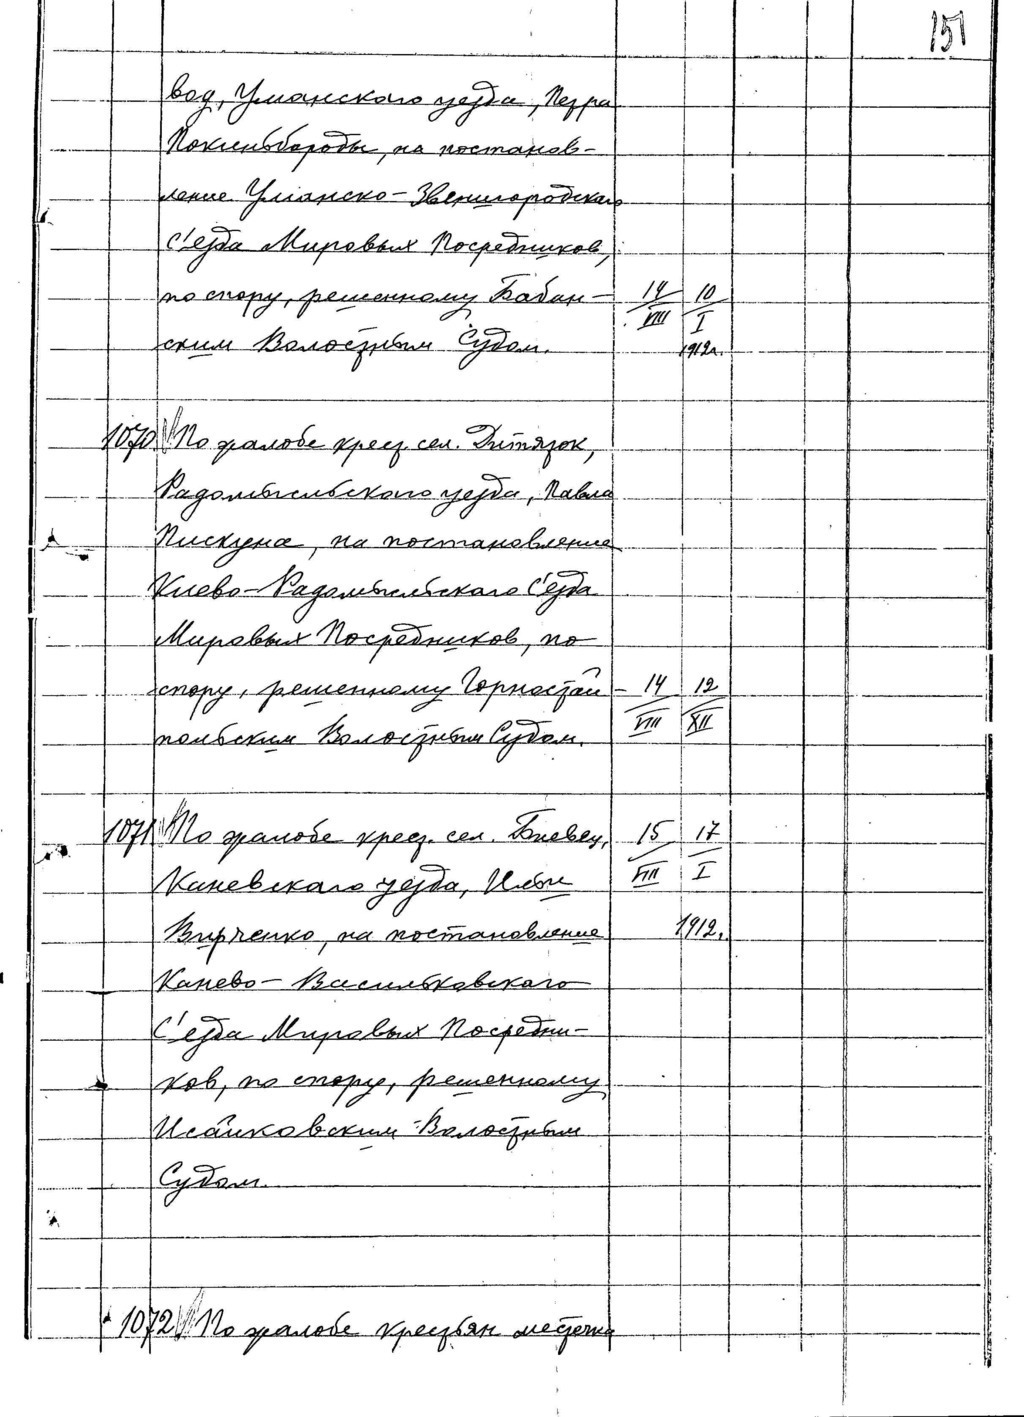 151
вод, Уманского уезда, Петра
Покиньбороды, на постанов-
ление Уманско-Звенигородскаго
С'езда Мировых Посредников,
по спору, решенному Бабан- 14/VIII 10/I
ским Волостным Судом. 1912г.
1070 По жалобе крест. сел. Дитяток,
Радомысльскаго уезда, Павла
Пискуна, на постановление
Киево-Радомысльскаго С'езда
Мировых Посредников, по
спору, решенному Горностай- 14/VIII 12/XII
польским Волостным Судом.
1071 По жалобе крест. сел. Биевец, 15/VIII 17/I
Каневскаго уезда, Ильи
Вирченко, на постановление 1912г.
Канево-Васильковскаго
С'езда Мировых Посредни-
ков, по спору, решенному
Исайковским Волостным
Судом.
1072 По жалобе крестьян местечка